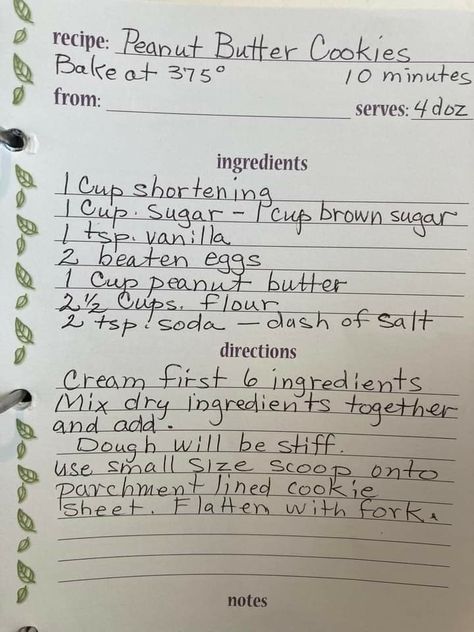 recipe: Peanut Butter Cookies
Bake at 375° 10 minutes
from: serves: 4 doz
ingredients
1 Cup shortening
1 Cup. Sugar - 1 cup brown sugar
1 tsp. vanilla
2 beaten eggs
1 Cup peanut butter
2 1/2 Cups. flour
2 tsp. soda - dash of Salt
directions
Cream first 6 ingredients
Mix dry ingredients together
and add.
Dough will be stiff.
use small size scoop onto
parchment lined cookie
sheet. Flatten with fork.
notes